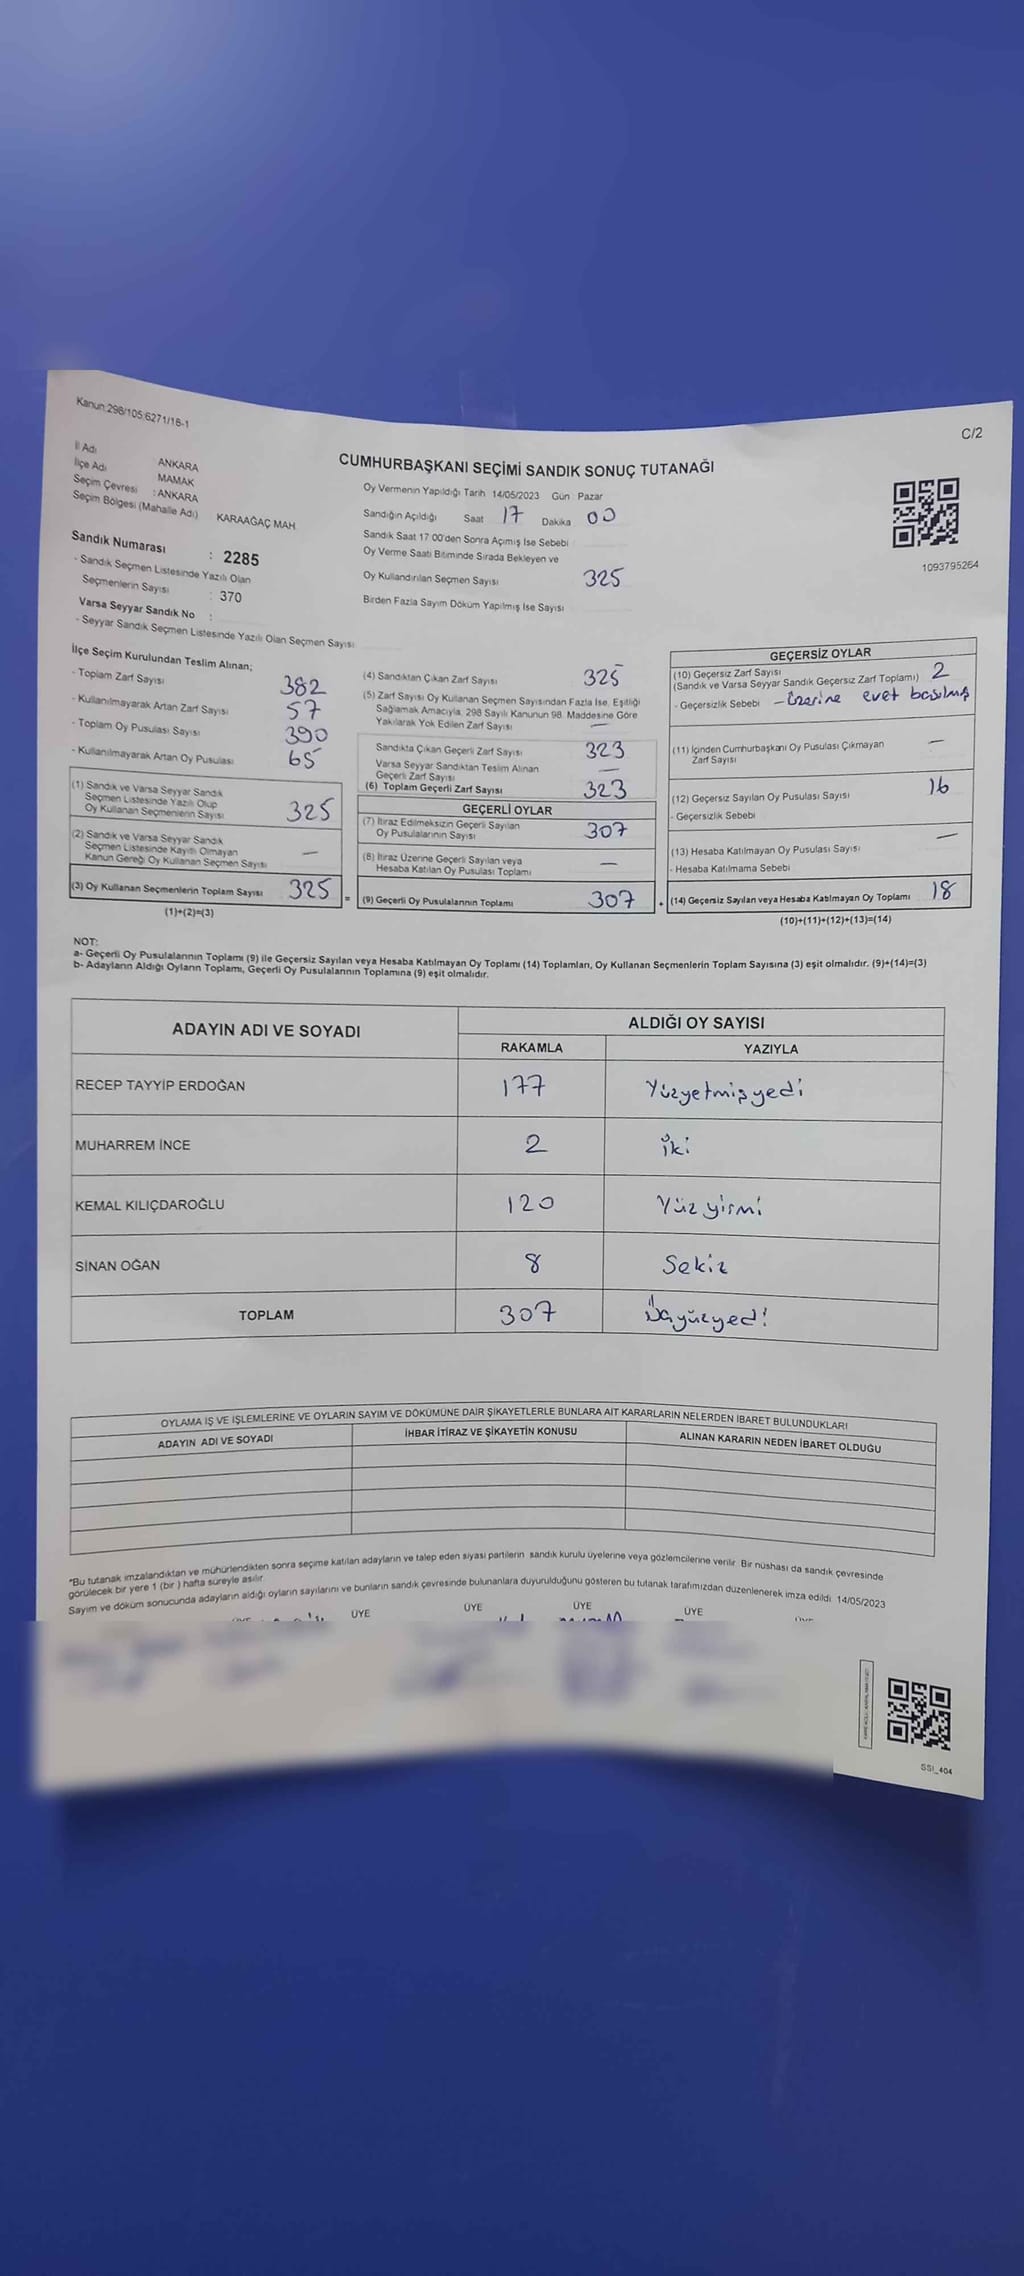 Kanun:298/105:6271/16-1
C/2
İl Adı ANKARA
İlçe Adı MAMAK
Seçim Çevresi : ANKARA
Seçim Bölgesi (Mahalle Adı) KARAAĞAÇ MAH
Sandık Numarası : 2285
- Sandık Seçmen Listesinde Yazılı Olan
Seçmenlerin Sayısı : 370
Varsa Seyyar Sandık No :
- Seyyar Sandık Seçmen Listesinde Yazılı Olan Seçmen Sayısı
CUMHURBAŞKANI SEÇİMİ SANDIK SONUÇ TUTANAĞI
Oy Vermenin Yapıldığı Tarih 14/05/2023 Gün Pazar
Sandığın Açıldığı Saat 17 Dakika 00
Sandık Saat 17 00'den Sonra Açımış Ise Sebebi
Oy Verme Saati Bitiminde Sırada Bekleyen ve
Oy Kullandırılan Seçmen Sayısı 325
Birden Fazla Sayım Döküm Yapılmış Ise Sayısı
1093795264
İlçe Seçim Kurulundan Teslim Alınan;
- Toplam Zarf Sayısı 382
- Kullanılmayarak Artan Zarf Sayısı 57
- Toplam Oy Pusulası Sayısı 390
- Kullanılmayarak Artan Oy Pusulası 65
(1) Sandık ve Varsa Seyyar Sandık
Seçmen Listesinde Yazılı Olup
Oy Kullanan Seçmenlerin Sayısı 325
(2) Sandık ve Varsa Seyyar Sandık
Seçmen Listesinde Kayıtlı Olmayan
Kanun Gereği Oy Kullanan Seçmen Sayısı —
(3) Oy Kullanan Seçmenlerin Toplam Sayısı 325
(1)+(2)=(3)
(4) Sandıktan Çıkan Zarf Sayısı 325
(5) Zarf Sayısı Oy Kullanan Seçmen Sayısından Fazla Ise, Eşitliği
Sağlamak Amacıyla, 298 Sayılı Kanunun 98. Maddesine Göre
Yakılarak Yok Edilen Zarf Sayısı —
Sandıkta Çıkan Geçerli Zarf Sayısı 323
Varsa Seyyar Sandıktan Teslim Alınan
Geçerli Zarf Sayısı —
(6) Toplam Geçerli Zarf Sayısı 323
GEÇERLİ OYLAR
(7) İtiraz Edilmeksizin Geçerli Sayılan
Oy Pusulalarının Sayısı 307
(8) İtiraz Üzerine Geçerli Sayılan veya
Hesaba Katılan Oy Pusulası Toplamı —
= (9) Geçerli Oy Pusulalarının Toplamı 307
GEÇERSİZ OYLAR
(10) Geçersiz Zarf Sayısı
(Sandık ve Varsa Seyyar Sandık Geçersiz Zarf Toplamı) 2
- Geçersizlik Sebebi - üzerine evet basılmış
(11) İçinden Cumhurbaşkanı Oy Pusulası Çıkmayan
Zarf Sayısı —
(12) Geçersiz Sayılan Oy Pusulası Sayısı 16
- Geçersizlik Sebebi
(13) Hesaba Katılmayan Oy Pusulası Sayısı —
- Hesaba Katılmama Sebebi
+ (14) Geçersiz Sayılan veya Hesaba Katılmayan Oy Toplamı 18
(10)+(11)+(12)+(13)=(14)
NOT:
a- Geçerli Oy Pusulalarının Toplamı (9) ile Geçersiz Sayılan veya Hesaba Katılmayan Oy Toplamı (14) Toplamları, Oy Kullanan Seçmenlerin Toplam Sayısına (3) eşit olmalıdır. (9)+(14)=(3)
b- Adayların Aldığı Oyların Toplamı, Geçerli Oy Pusulalarının Toplamına (9) eşit olmalıdır.
ADAYIN ADI VE SOYADI ALDIĞI OY SAYISI
RAKAMLA YAZIYLA
RECEP TAYYİP ERDOĞAN 177 Yüzyetmişyedi
MUHARREM İNCE 2 iki
KEMAL KILIÇDAROĞLU 120 Yüz yirmi
SİNAN OĞAN 8 Sekiz
TOPLAM 307 Üçyüzyedi
OYLAMA İŞ VE İŞLEMLERİNE VE OYLARIN SAYIM VE DÖKÜMÜNE DAİR ŞİKAYETLERLE BUNLARA AİT KARARLARIN NELERDEN İBARET BULUNDUKLARI
ADAYIN ADI VE SOYADI İHBAR İTİRAZ VE ŞİKAYETİN KONUSU ALINAN KARARIN NEDEN İBARET OLDUĞU
*Bu tutanak imzalandıktan ve mühürlendikten sonra seçime katılan adayların ve talep eden siyasi partilerin sandık kurulu üyelerine veya gözlemcilerine verilir. Bir nüshası da sandık çevresinde
görülecek bir yere 1 (bir ) hafta süreyle asılır.
Sayım ve döküm sonucunda adayların aldığı oyların sayılarını ve bunların sandık çevresinde bulunanlara duyurulduğunu gösteren bu tutanak tarafımızdan düzenlenerek imza edildi. 14/05/2023
ÜYE ÜYE ÜYE ÜYE ÜYE
SSI_404